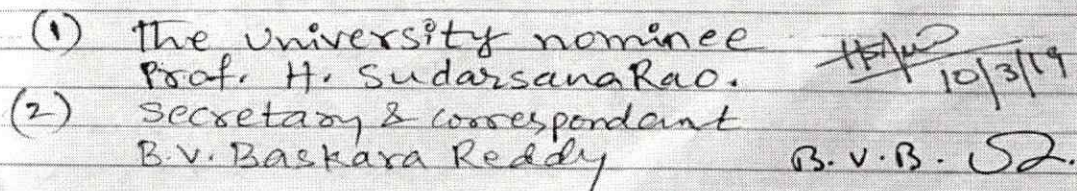 (1) The University nominee
Prof. H. SudarsanaRao. 10/3/19
(2) Secretary & correspondant
B.V. Baskara Reddy B.V.B.